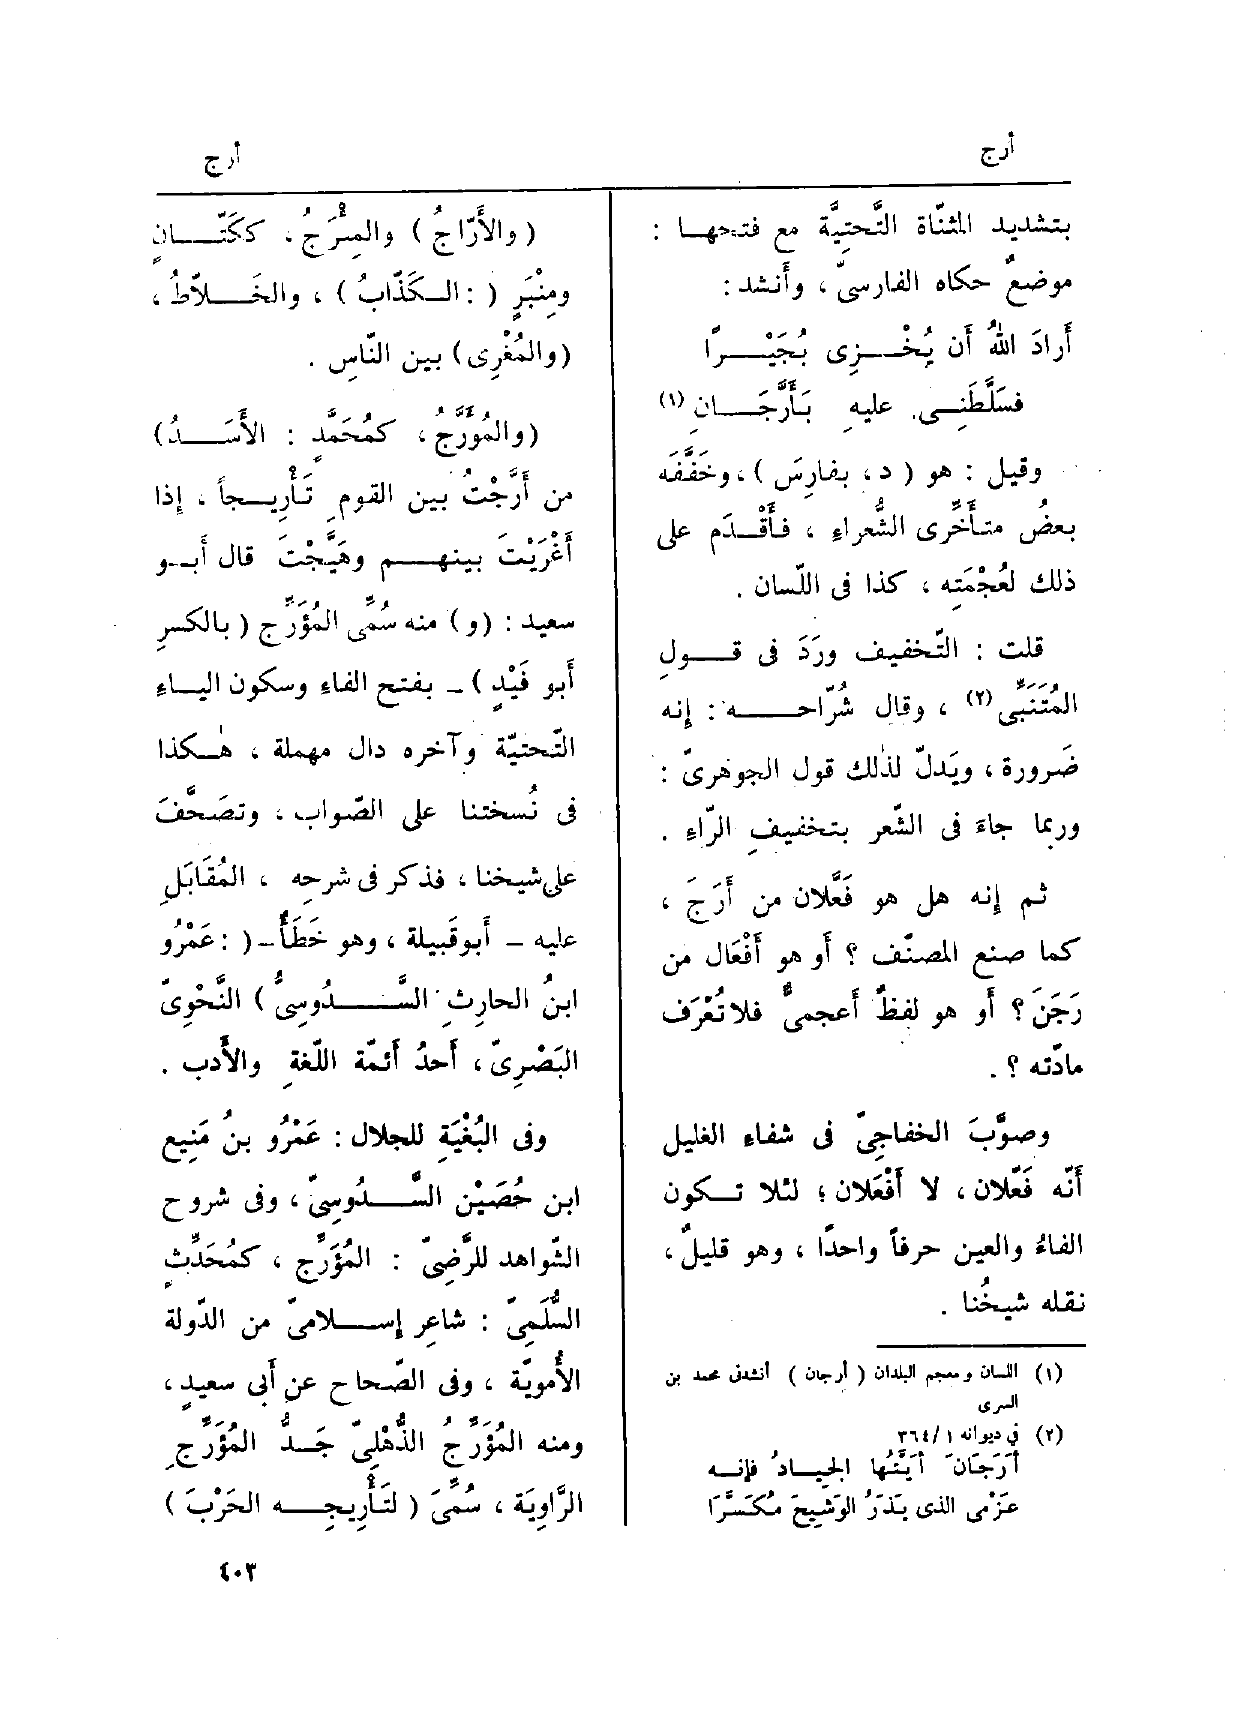 أرج
أرج
بتشديد المثنّاة التَّحتِيَّة مع فتحها :
موضعٌ حكاه الفارسىّ ، وأَنشد :
أَرادَ اللهُ أَن يُخْــزِى بُجَيْــرًا
فسَلَّطَنِــى عليهِ بَأَرَّجَــانِ (١)
وقيل : هو ( د ، بفارِسَ ) ، وخَفَّفَه
بعضُ متأَخِّرى الشُّعراءِ ، فأَقْدَم على
ذلك لعُجْمَتِه ، كذا فى اللّسان .
قلت : التّخفيف ورَدَ فى قــولِ
المُتَنَبِّى (٢) ، وقال شُرّاحــه : إنه
ضَرورة ، ويَدلّ لذٰلك قول الجوهَرىّ :
وربما جاءَ فى الشّعر بتخفيفِ الرّاءِ .
ثم إنه هل هو فَعَّلان من أَرَجَ ،
كما صنع المصنّف ؟ أَو هو أَفْعَال من
رَجَنَ ؟ أَو هو لفظٌ أَعجمىٌّ فلا تُعْرَف
مادّته ؟ .
وصوَّبَ الخفاجِىّ فى شفاء الغليل
أَنّه فَعَّلان ، لا أَفْعَلان ؛ لئلا تــكون
الفاءُ والعين حرفاً واحدًا ، وهو قليلٌ ،
نقله شيخُنا .
(١) اللسان ومعجم البلدان ( أرجان ) أنشدنى محمد بن
السرى
(٢) فى ديوانه ١/٣٦٤
أرَجَانَ أيَّتُها الجيــادُ فإنــه
عَزْمى الذى يَذَرُ الوَشِيجَ مُكَسَّرَا
( والأَرّاجُ ) والمِئْرَجُ ، ككَتّــانٍ
ومِنْبَرٍ ( : الــكَذّابُ ) ، والخَــلاّطُ ،
(والمُغْرِى) بين النّاسِ .
(والمُؤَرَّجُ ، كمُحَمَّدٍ : الأَسَــدُ)
من أَرَّجْتُ بين القومِ تَأْرِيــجاً ، إذا
أَغْرَيْتَ بينهــم وهَيَّجْتَ قال أَبــو
سعيد : (و) منه سُمِّى المُؤَرِّج ( بالكسرِ
أَبو فَيْدٍ ) ــ بفتح الفاء وسكون اليــاء
التّحتيّة وآخره دال مهملة ، هٰــكذا
فى نُسختنا على الصّواب ، وتصَحَّفَ
على شيخنا ، فذكر فى شرحِه ، المُقَابَلِ
عليه – أَبو قَبيلة ، وهو خَطَأٌ – ( : عَمْرُو
ابنُ الحارِثِ السَّــدُوسِىُّ ) النَّحْوِىّ
البَصْرِىّ ، أَحدُ أَئمّة اللّغةِ والأَدب .
وفى البُغْيَةِ للجلال : عَمْرُو بنُ مَنِيع
ابن حُصَيْن السَّــدُوسِىّ ، وفى شروح
الشّواهد للرَّضِىّ : المُؤَرِّج ، كمُحَدِّثٍ
السُّلَمِىّ : شاعِر إســلامىّ من الدّولة
الأُمويّة ، وفى الصّحاح عن أَبى سعيدٍ ،
ومنه المُؤَرِّجُ الذُّهْلِىّ جَــدُّ المُؤَرِّجِ
الرَّاوِيَة ، سُمِّىَ ( لتَأْرِيجِــه الحَرْبَ )
٤٠٣